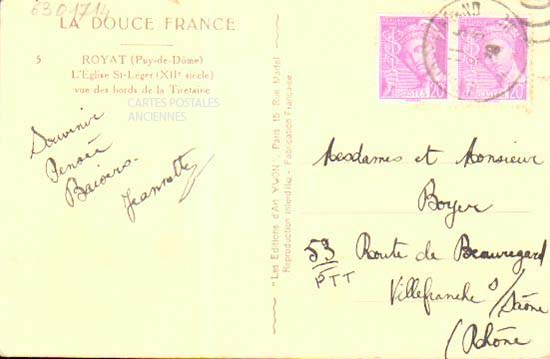 6301714
LA DOUCE FRANCE
5
ROYAT (Puy-de-Dôme)
L'Eglise St-Léger (XIIe siècle)
vue des bords de la Tiretaine
CARTES POSTALES
ANCIENNES
Souvenir
Pensée
Baisers
Jeannette
"Les Editions d'Art YVON", Paris 15 Rue Martel
Reproduction interdite - Fabrication Française
20
POSTES
20
Mesdames et Monsieur
Boyer
53 Route de Beauregard
PTT
Villefranche s/Saône
(Rhône